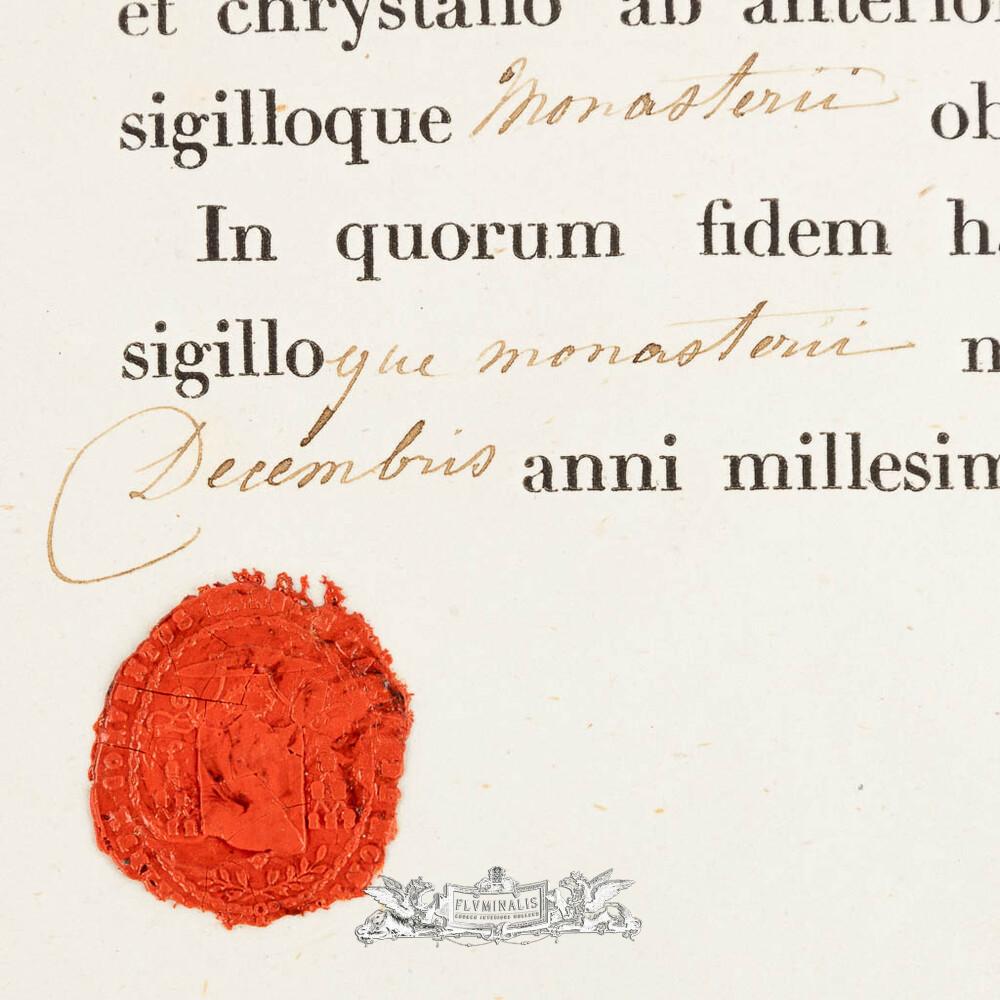 et chrystallo ab anterio
sigilloque Monasterii ob
In quorum fidem ha
sigilloque monasterii n
Decembris anni millesim
FLVMINALIS
CHURCH INTERIORS HOLLAND